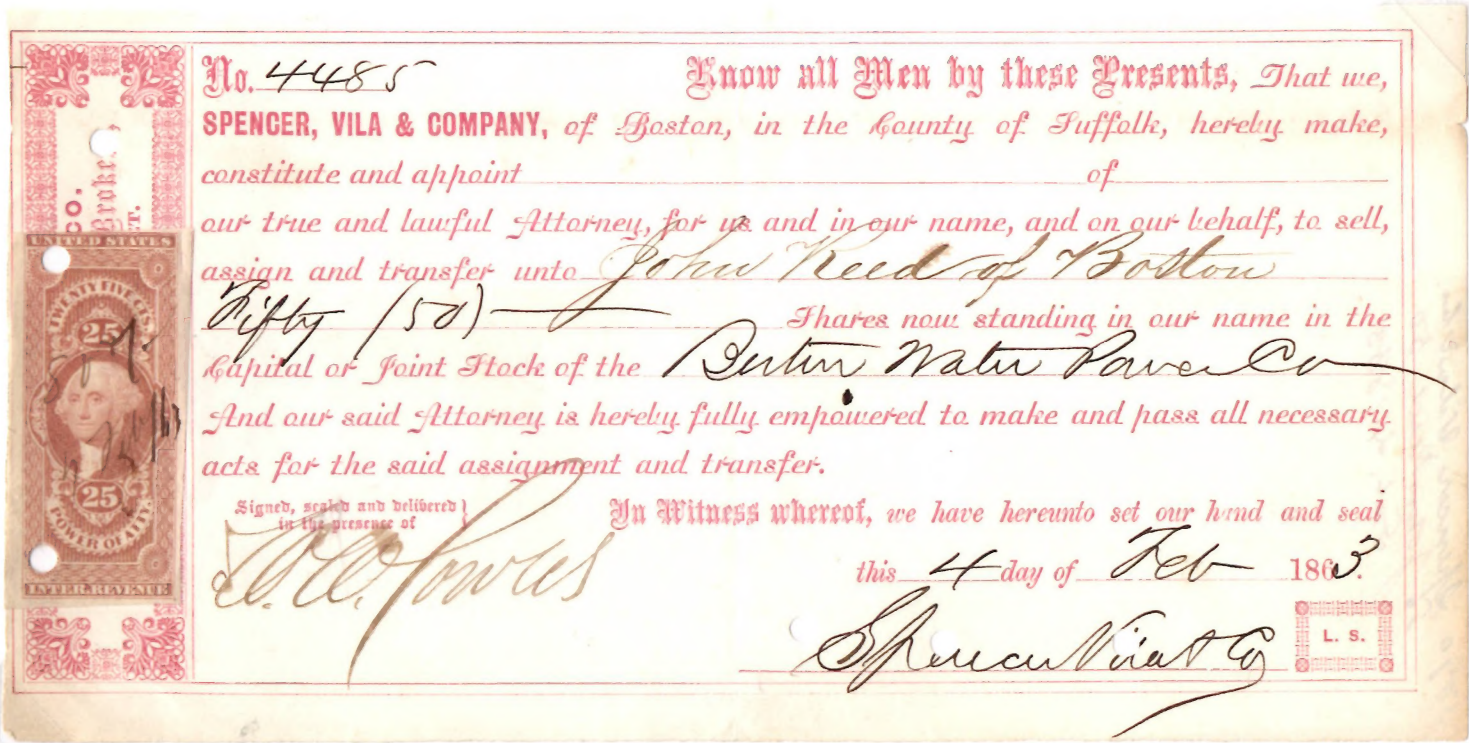 No. 4485 Know all Men by these Presents, That we,
SPENCER, VILA & COMPANY, of Boston, in the County of Suffolk, hereby make,
constitute and appoint of
our true and lawful Attorney, for us and in our name, and on our behalf, to sell,
assign and transfer unto John Reed of Boston
Fifty (50) Shares now standing in our name in the
Capital or Joint Stock of the Boston Water Power Co
And our said Attorney is hereby fully empowered to make and pass all necessary
acts for the said assignment and transfer.
Signed, sealed and delivered
in the presence of
In Witness whereof, we have hereunto set our hand and seal
this 4 day of Feb 1863.
Spencer Vila & Co
L. S.
CO.
Broke
ET.
UNITED STATES
TWENTY FIVE CTS.
25
25
POWER OF ATT'Y.
INTER. REVENUE